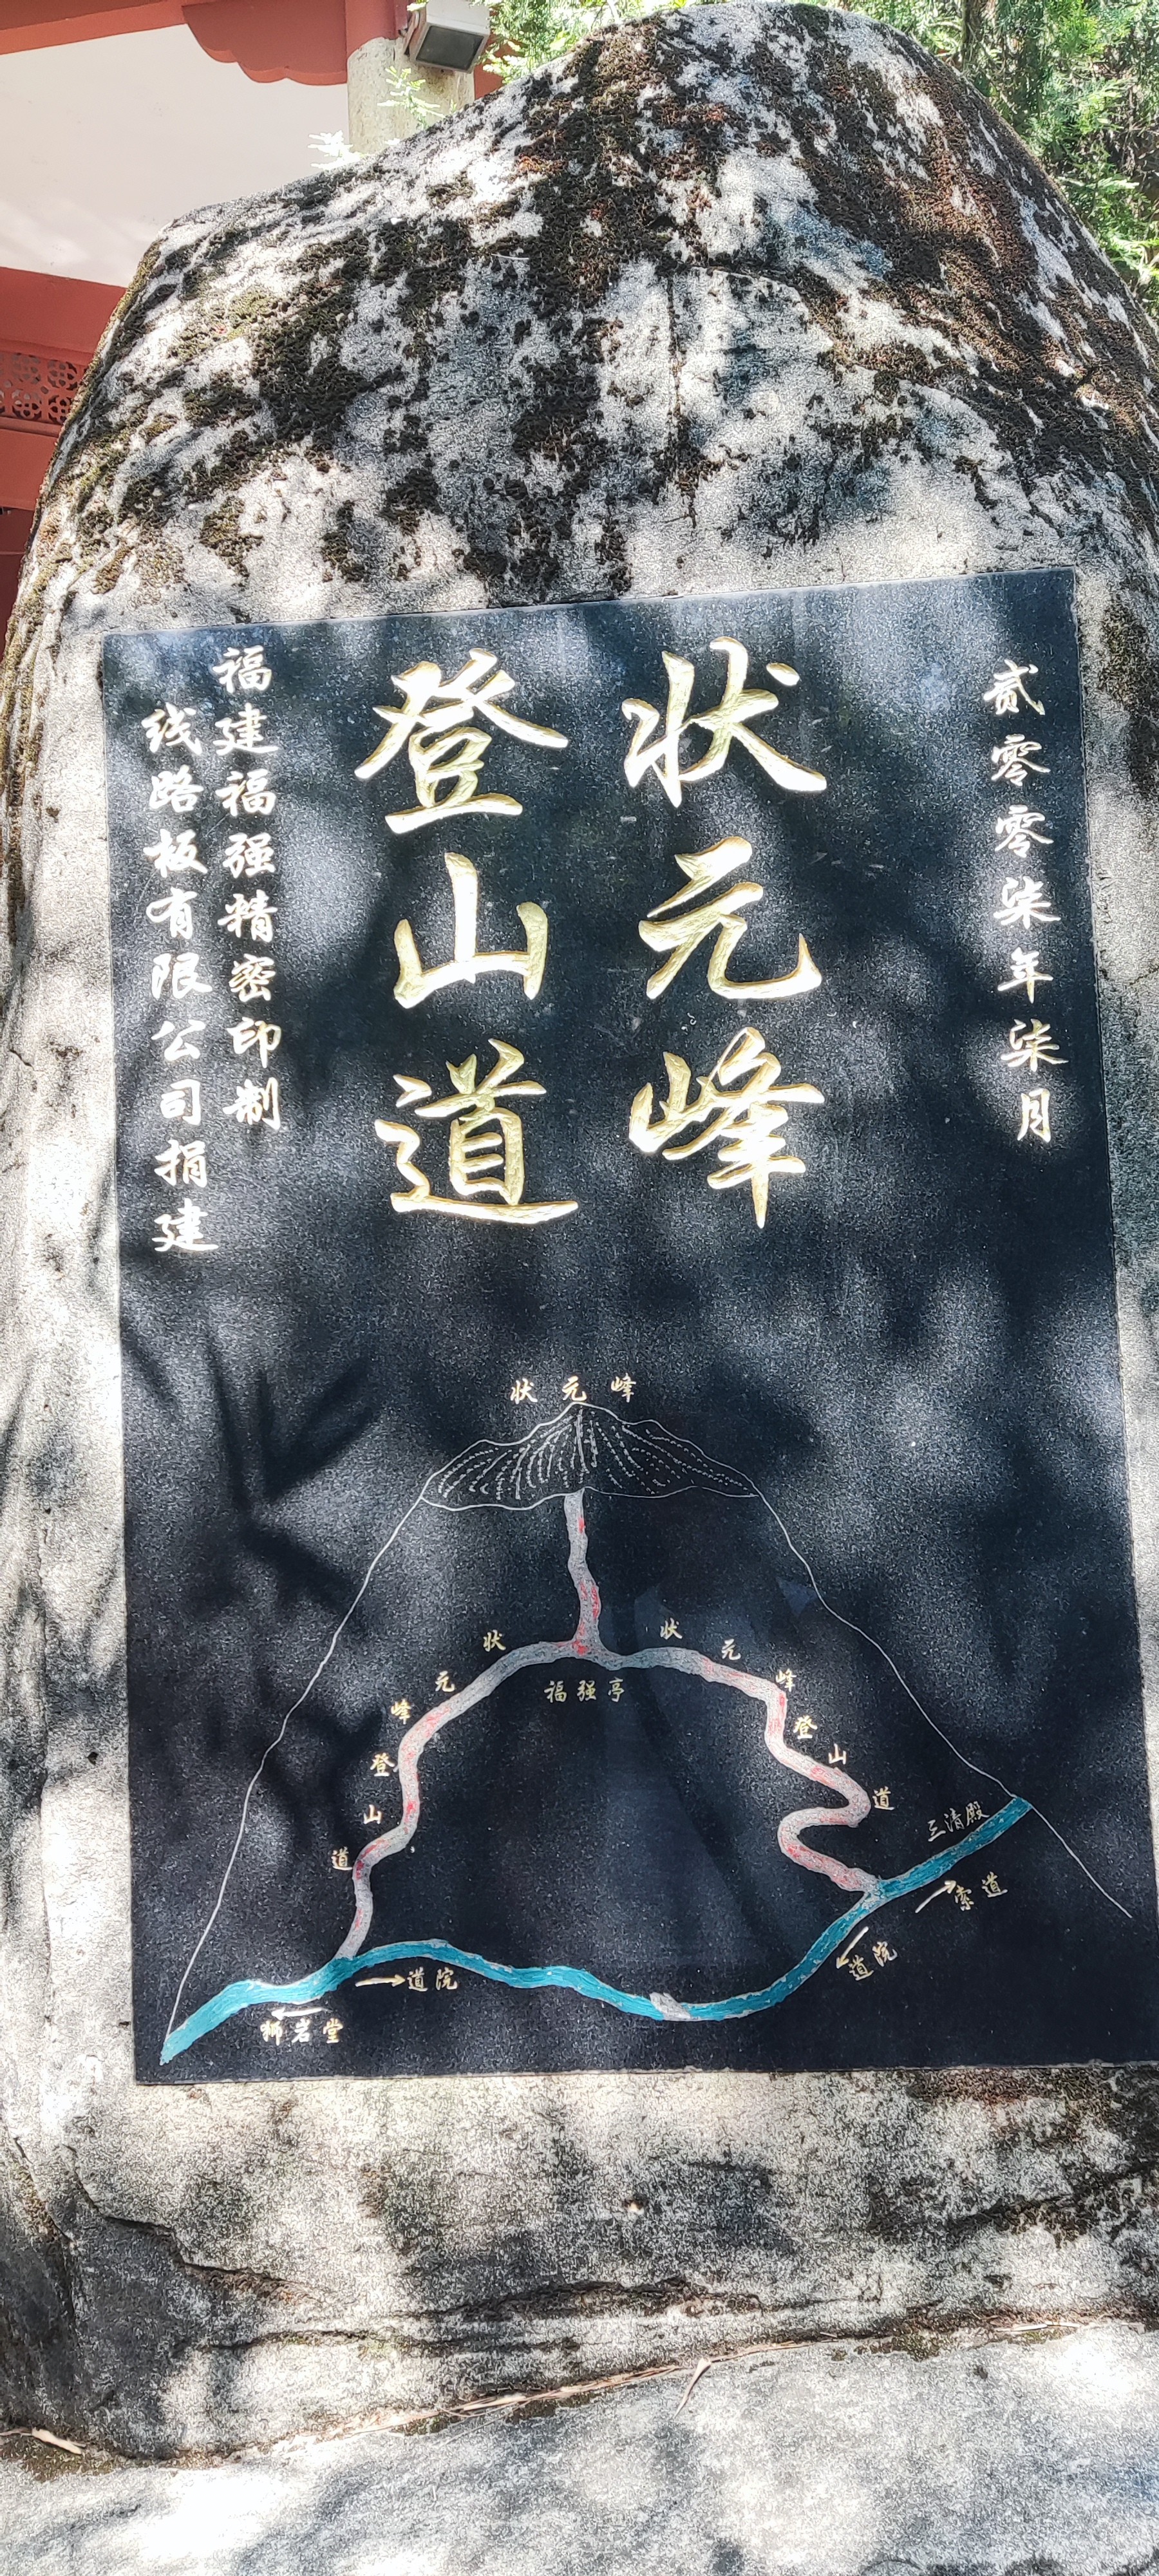 贰零零柒年柒月
状元峰
登山道
福建福强精密印制
线路板有限公司捐建
状元峰
状元峰登山道
状元峰登山道
福强亭
三清殿
索道
道院
道院
狮岩堂